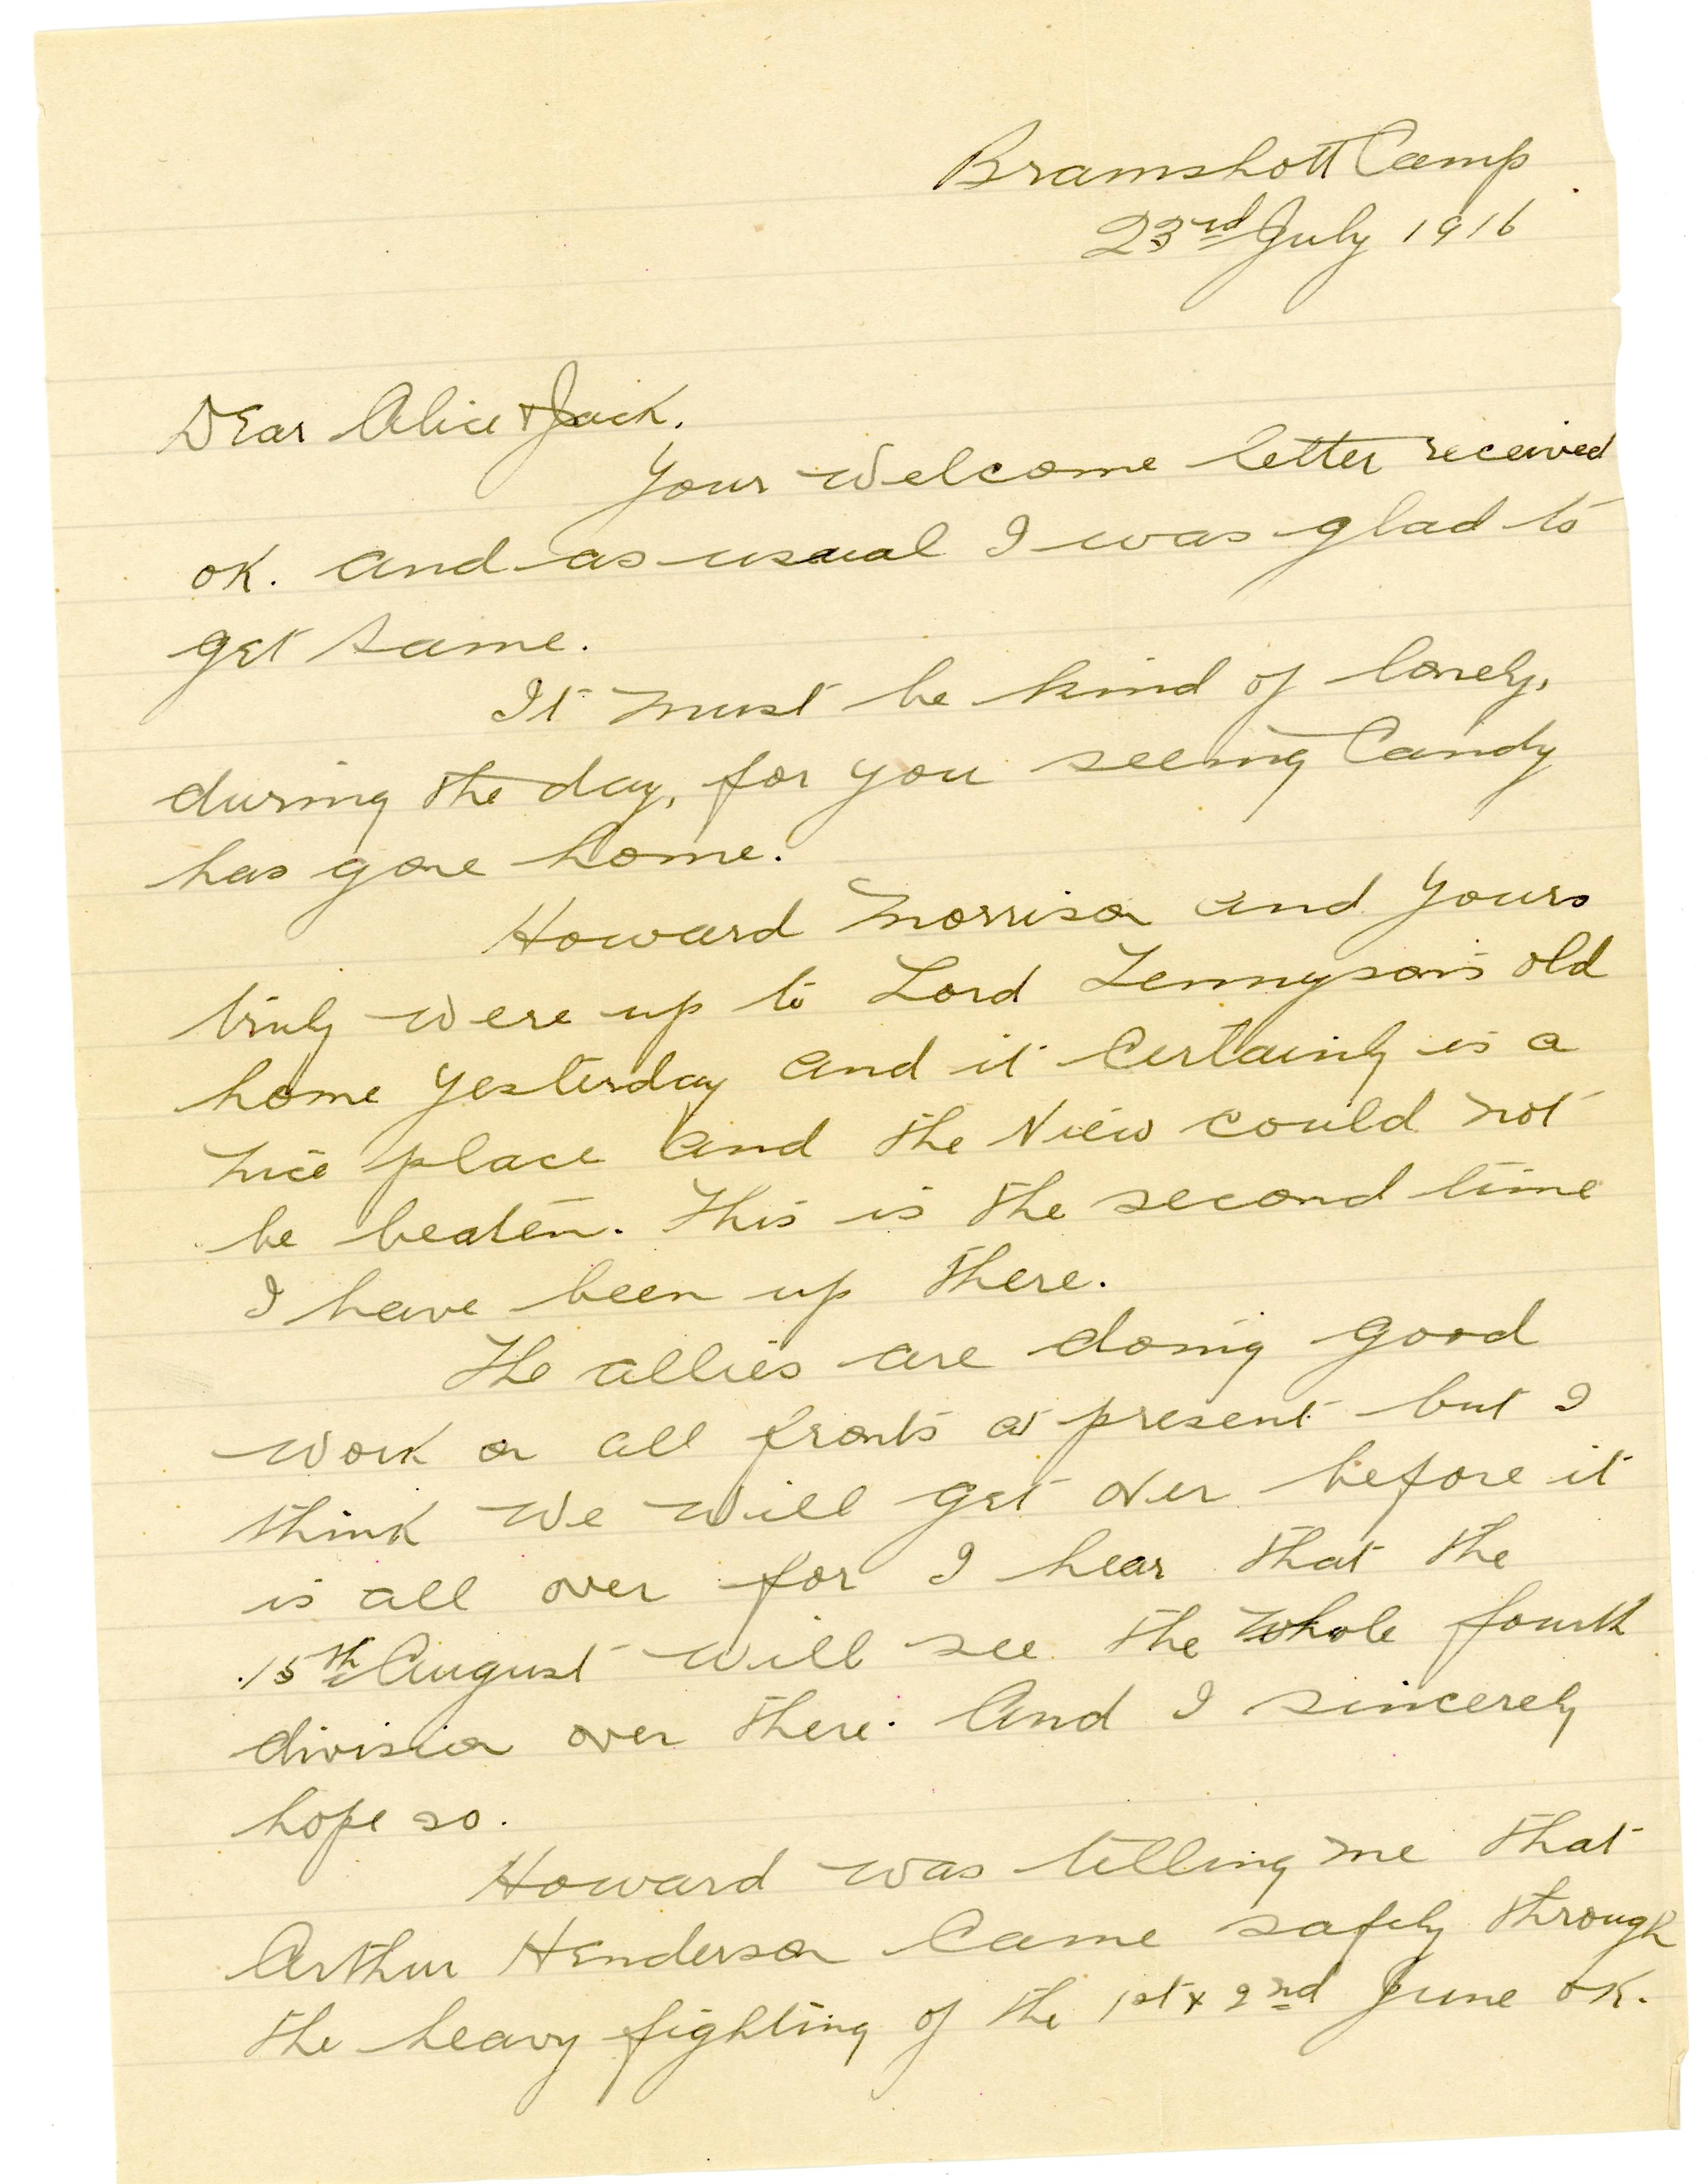 Bramshott Camp
23rd July 1916
Dear Alice & Jack.
Your welcome letter received
ok. and as usual I was glad to
get same.
It must be kind of lonely,
during the day, for you seeing Candy
has gone home.
Howard Morrison and yours
truly were up to Lord Tennyson's old
home yesterday and it certainly is a
nice place and the view could not
be beaten. This is the second time
I have been up there.
The allies are doing good
work on all fronts at present but I
think we will get over before it
is all over for I hear that the
15th August will see the whole fourth
division over there. And I sincerely
hope so.
Howard was telling me that
Arthur Henderson came safely through
the heavy fighting of the 1st & 2nd June ok.